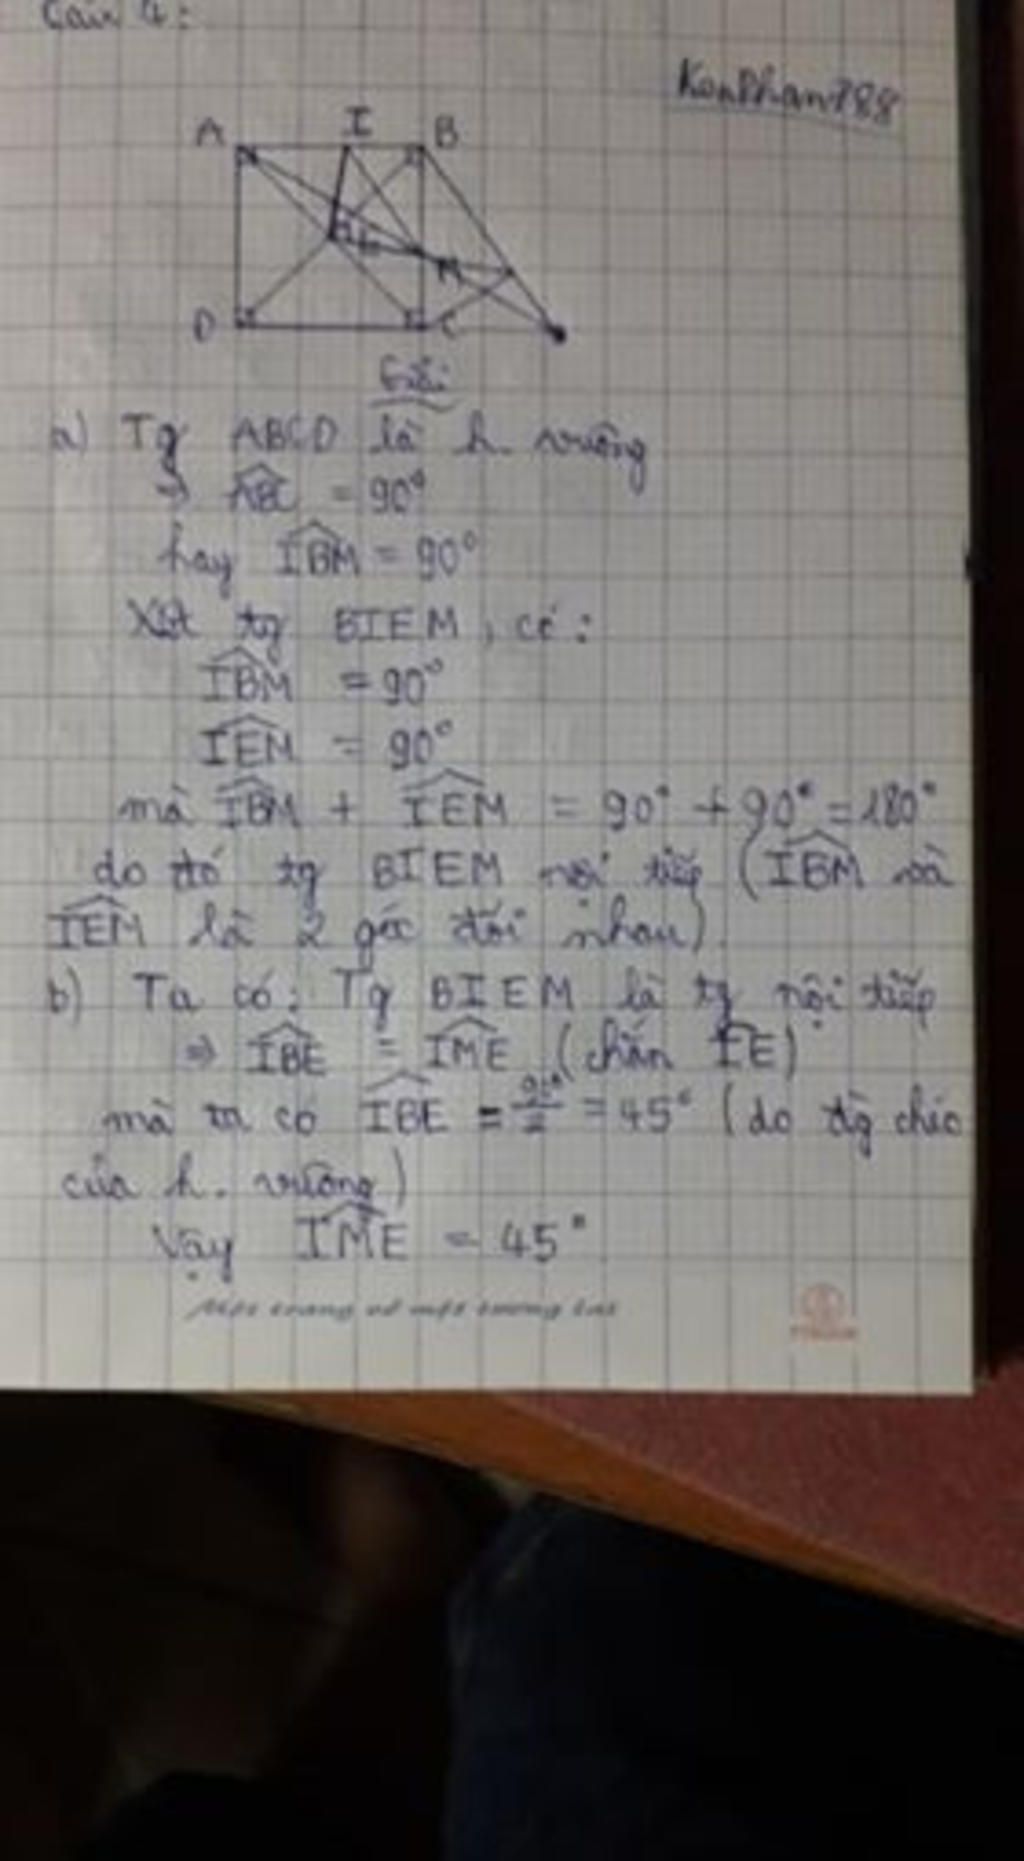 Câu 4:
KenPhan788
A I B
E M
D C
Giải
a) Tg ABCD là h. vuông
⇒ ABC = 90°
hay IBM = 90°
Xét tg BIEM, có:
IBM = 90°
IEM = 90°
mà IBM + IEM = 90° + 90° = 180°
do đó tg BIEM nội tiếp (IBM và
IEM là 2 góc đối nhau).
b) Ta có: Tg BIEM là tg nội tiếp
⇒ IBE = IME (chắn IE)
mà ta có IBE = 90°/2 = 45° (do đg chéo
của h. vuông)
Vậy IME = 45°